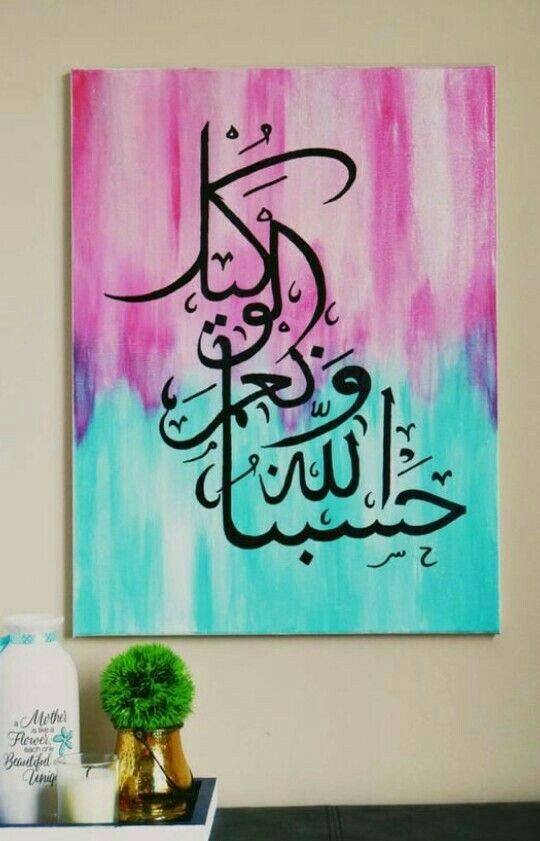 حسبنا الله
ونعم
الوكيل
a Mother
is like a
Flower,
each one
Beautiful
Unique